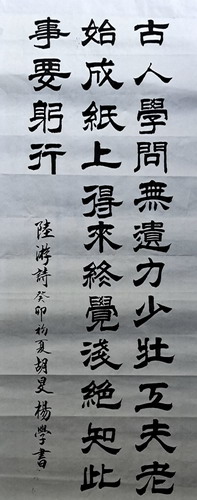 古人學問無遺力少壯工夫老
始成紙上得來終覺淺絕知此
事要躬行
陸游詩癸卯初夏胡旻楊學書